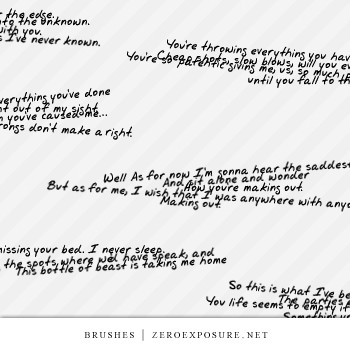 the edge.
into the unknown.
with you.
I've never known.
You're throwing everything you hav
Cheap shots, slow blows, will you e
You're so parentic giving me, us, so much
until you fall to th
everything you've done
out of my sight
you've caused me...
wrongs don't make a right.
Well As for now I'm gonna hear the saddes
And sit alone and wonder
How you're making out.
But as for me, I wish that I was anywhere with any
Making out.
missing your bed. I never sleep.
the spots where we'd have speak, and
This bottle of beast is taking me home
So this is what I've be
The parties
You life seems to empty it
Something
BRUSHES | ZEROEXPOSURE.NET